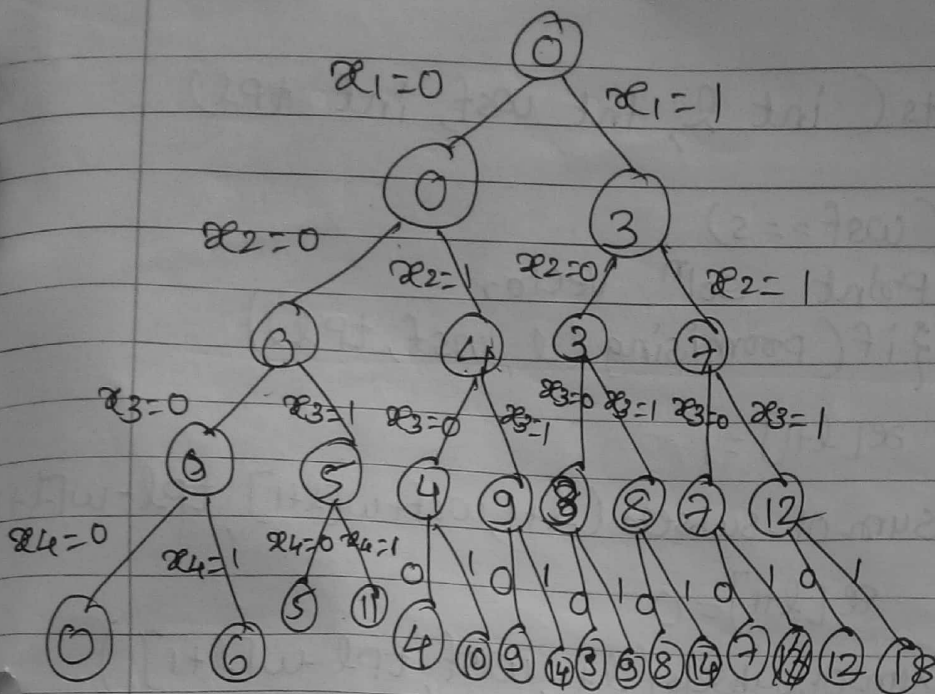 0
x1=0 x1=1
0 3
x2=0 x2=1 x2=0 x2=1
0 4 3 7
x3=0 x3=1 x3=0 x3=1 x3=0 x3=1 x3=0 x3=1
0 5 4 9 3 8 7 12
x4=0 x4=1 x4=0 x4=1 0 1 0 1 0 1 0 1 0 1 0 1
0 6 5 11 4 10 9 14 3 9 8 14 7 12 18